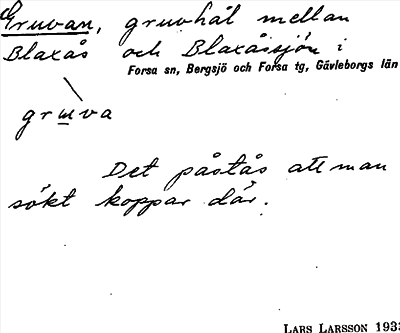 Gruvan, gruvhål mellan
Blaxås och Blaxåssjön i
Forsa sn, Bergsjö och Forsa tg, Gävleborgs län
gruva
Det påstås att man
sökt koppar där.
LARS LARSSON 1933